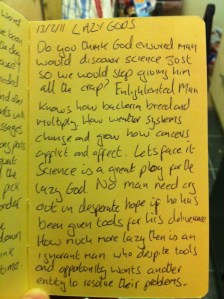 12/2/11 LAZY GODS
Do you think God ensured man
would discover science just
so we would stop giving him
all the crap? Enlightented Man
knows how bacteria breed and
multiply. How weather systems
change and grow how cancers
afflict and affect. Lets face it
Science is a great ploy for the
lazy God. No man need cry
out in desperate hope if he has
been given tools for his deliverance
How much more lazy then is an
ignorant man who despite tools
and opportunity wants another
entity to resolve their problems.